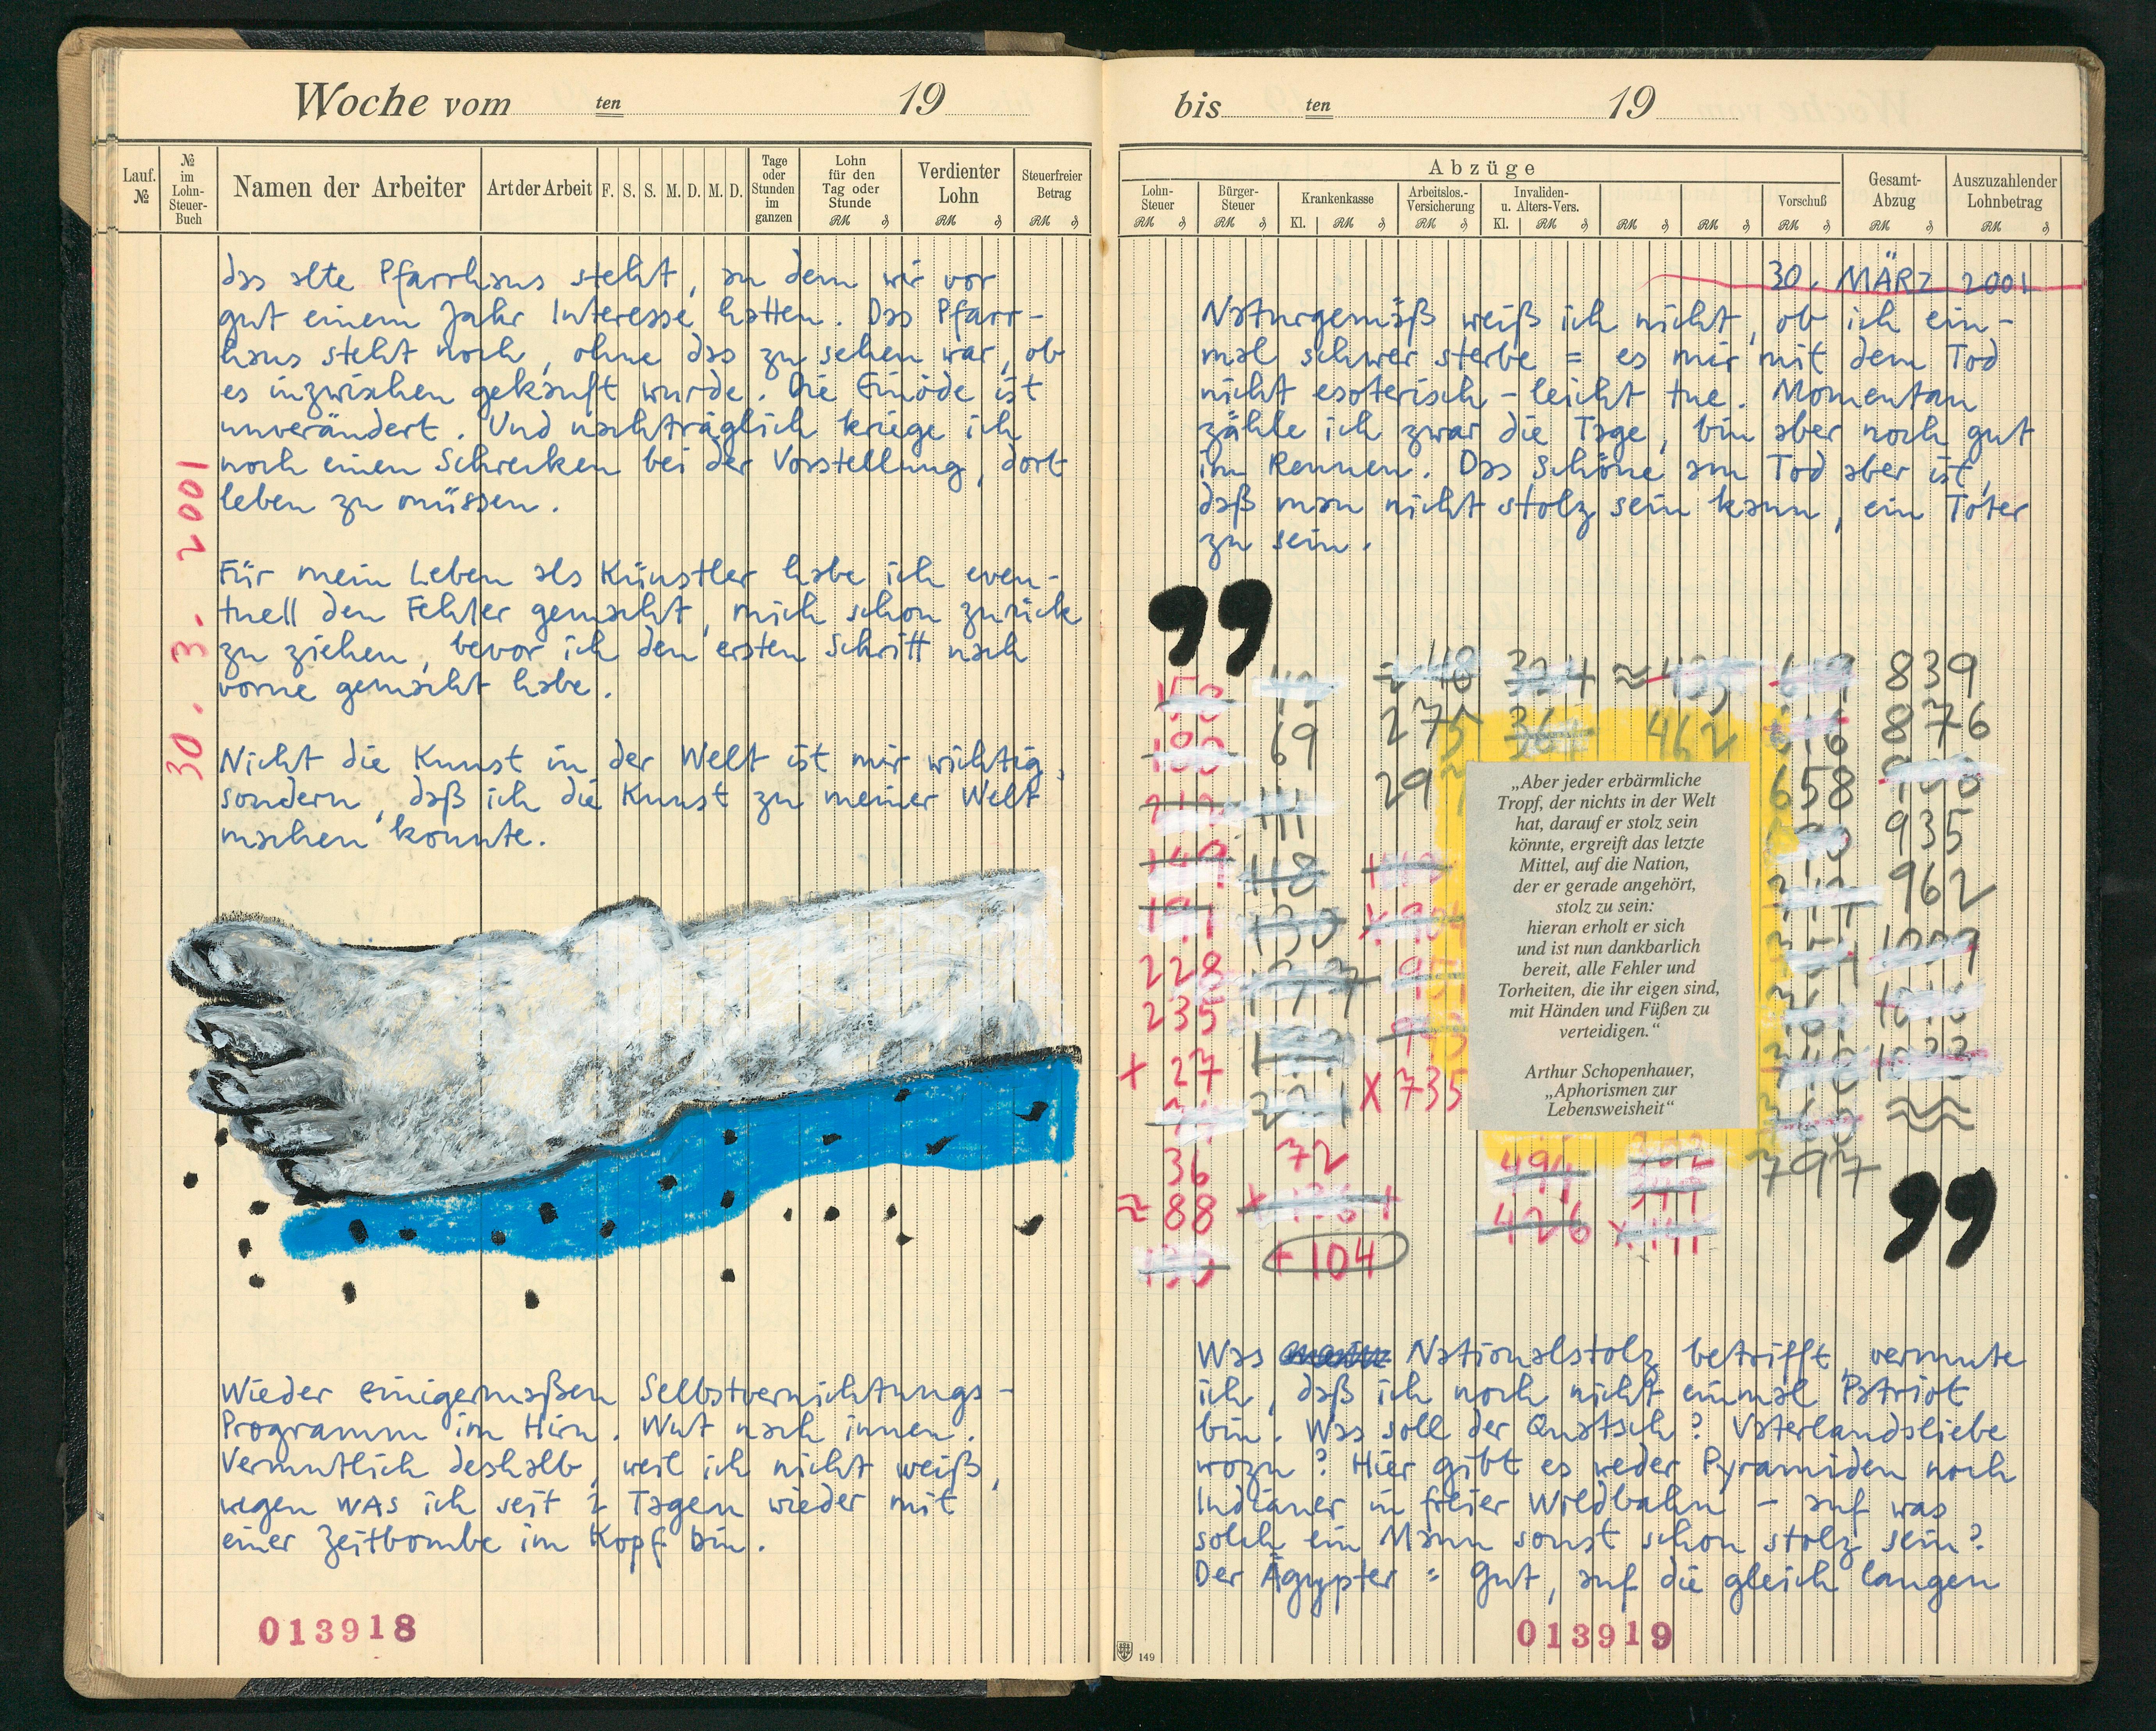 Woche vom ten 19
Lauf. №
№ im Lohn-Steuer-Buch
Namen der Arbeiter
Art der Arbeit
F. S. S. M. D. M. D.
Tage oder Stunden im ganzen
Lohn für den Tag oder Stunde
Verdienter Lohn
Steuerfreier Betrag
das alte Pfarrhaus steht, an dem wir vor
gut einem Jahr Interesse hatten. Das Pfarr-
haus steht noch, ohne das zu sehen war, ob
es inzwischen gekauft wurde. Die Einöde ist
unverändert. Und nachträglich kriege ich
noch einen Schrecken bei der Vorstellung, dort
leben zu müssen.
30. 3. 2001
Für mein Leben als Künstler habe ich even-
tuell den Fehler gemacht, mich schon zurück
zu ziehen, bevor ich den ersten Schritt nach
vorne gemacht habe.
Nicht die Kunst in der Welt ist mir wichtig,
sondern, daß ich die Kunst zu meiner Welt
machen konnte.
Wieder einigermaßen Selbstvernichtungs-
Programm im Hirn. Wut nach innen.
Vermutlich deshalb, weil ich nicht weiß,
wegen WAS ich seit 2 Tagen wieder mit
einer Zeitbombe im Kopf bin.
013918
bis ten 19
Abzüge
Lohn-Steuer
Bürger-Steuer
Krankenkasse
Arbeitslos.-Versicherung
Invaliden- u. Alters-Vers.
Vorschuß
Gesamt-Abzug
Auszuzahlender Lohnbetrag
30. MÄRZ 2001
Naturgemäß weiß ich nicht, ob ich ein-
mal schwer sterbe = es mir mit dem Tod
nicht esoterisch-leicht tue. Momentan
zähle ich zwar die Tage, bin aber noch gut
im Rennen. Das Schöne am Tod aber ist,
daß man nicht stolz sein kann, ein Toter
zu sein.
”
839
69 275 462 876
658
935
962
228
235
+ 27 X 735
36 72 797
≈ 88
+ 104
„Aber jeder erbärmliche
Tropf, der nichts in der Welt
hat, darauf er stolz sein
könnte, ergreift das letzte
Mittel, auf die Nation,
der er gerade angehört,
stolz zu sein:
hieran erholt er sich
und ist nun dankbarlich
bereit, alle Fehler und
Torheiten, die ihr eigen sind,
mit Händen und Füßen zu
verteidigen.“
Arthur Schopenhauer,
„Aphorismen zur
Lebensweisheit“
”
Was Nationalstolz betrifft, vermute
ich, daß ich noch nicht einmal Patriot
bin. Was soll der Quatsch? Vaterlandsliebe
wozu? Hier gibt es weder Pyramiden noch
Indianer in freier Wildbahn – auf was
solch ein Mann sonst schon stolz sein?
Der Ägypter = gut, auf die gleich langen
149
013919